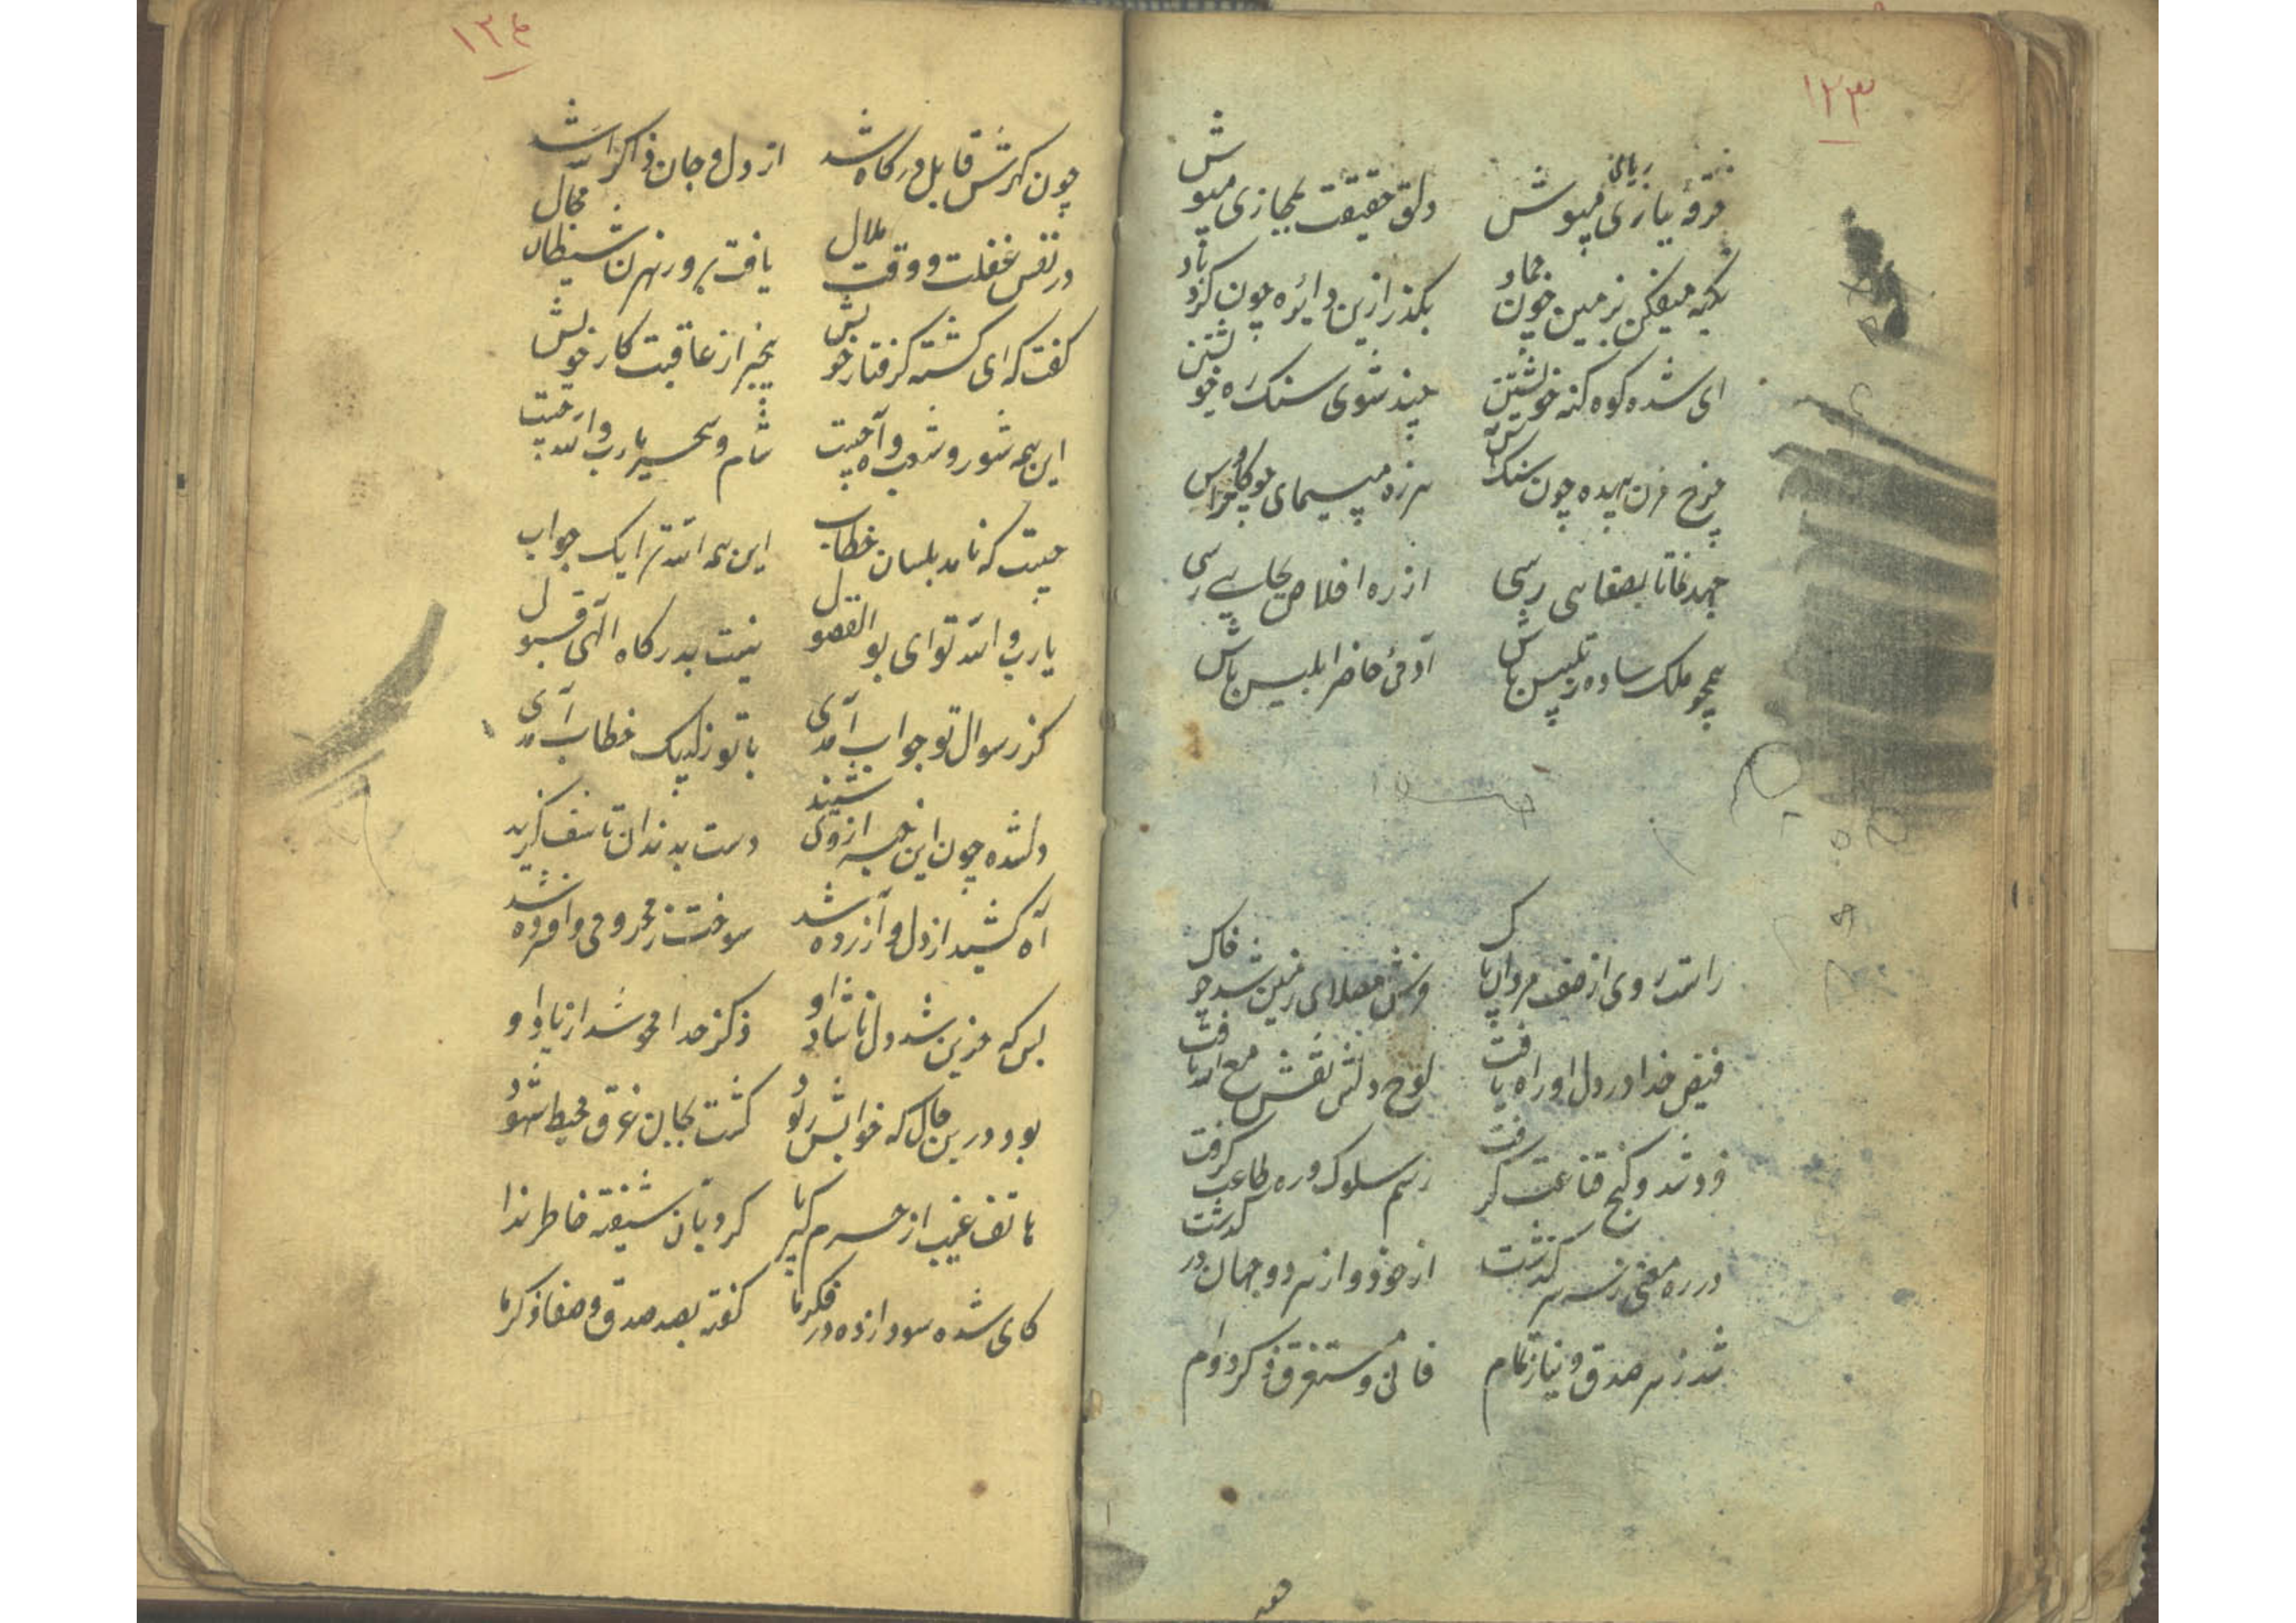 ۱۲۳
خرقهٔ یاری مپوش دلق حقیقت بمجازی مپوش
ریائی
تکیه میفکن بزمین چون جماد بکذر ازین دائره چون کرد باد
ای شده کوه کنه خویشتن چند شوی سنک ره خویشتن
چرخ مزن بیهده چون سنک آس هرزه مپیمای چو کاو خراس
جهد نما تا بصفائی رسی از ره اخلاص بجایی رسی
همچو ملک ساده ز تلبیس باش آدمی حاضر ابلیس باش
راست روی از صف مردان پاک فرش مصلای زمین شد چو خاک
فیض خدا در دل او راه یافت لوح دلش نقش مع الله یافت
فرد شد و کنج قناعت کرفت رسم سلوک و ره طاعت کرفت
در ره معنی ز سر سر کذشت از خود و از هر دو جهان در کذشت
شد ز سر صدق و نیاز تمام فانی و مستغرق ذکر دوام
۱۲۴
چون کهرش قابل درکاه شد از دل و جان ذاکر الله شد
در نفس غفلت و وقت ملال یافت برو رهزن شیطان مجال
کفت که ای کشته کرفتار خویش بیخبر از عاقبت کار خویش
این همه شور و شغب و آه چیست شام و سحر یارب و الله چیست
چیست که نامد بلسان خطاب این همه الله ترا یک جواب
یارب و الله تو ای بوالفضول نیست بدرکاه الهی قبول
کز ز سوال تو جواب آمدی با تو ز لبیک خطاب آمدی
دلشده چون این خبر از وی شنید دست بدندان تاسف کزید
آه کشید از دل و آزرده شد سوخت ز محرومی و افسرده شد
بس که حزین شد دل ناشاد او ذکر خدا محو شد از یاد او
بود درین حال که خوابش ربود کشت بجان غرق محیط شهود
هاتف غیب از حرم کبریا کرد بآن شیفته خاطر ندا
کای شده سودازده در فکر ما کفته بصد صدق و صفا ذکر ما